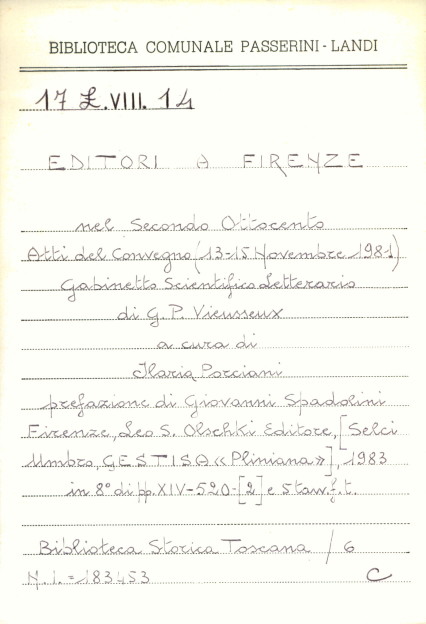 BIBLIOTECA COMUNALE PASSERINI - LANDI
17 L.VIII. 14
EDITORI A FIRENZE
nel Secondo Ottocento
Atti del Convegno (13-15 Novembre 1981)
Gabinetto Scientifico Letterario
di G. P. Vieusseux
a cura di
Ilaria Porciani
prefazione di Giovanni Spadolini
Firenze, Leo S. Olschki Editore, [Selci
Umbro, GESTISA «Pliniana»], 1983
in 8° di pp. XIV-520-[2] e 5 tav. f. t.
Biblioteca Storica Toscana / 6
N. i. = 183453 C